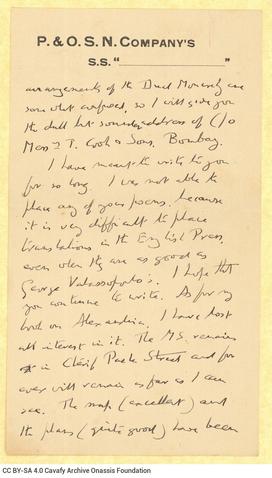 P. & O. S. N. COMPANY'S
S.S. "                    "
arrangements of the Dual Monarchy are
somewhat confused, so I will give you
the dull but sounder address of C/o
Mess. T. Cook & Sons, Bombay.
I have meant to write to you
for so long. I was not able to
place any of your poems, because
it is very difficult to place
translations in the English Press,
even when they are as good as
George Valassopoulo's. I hope that
you continue to write. As for my
book on Alexandria, I have lost
all interest in it. The M.S. remains
in Chérif Pacha Street and for
ever will remain as far as I can
see. The maps (excellent) and
the plans (quite good) have been
CC BY-SA 4.0 Cavafy Archive Onassis Foundation